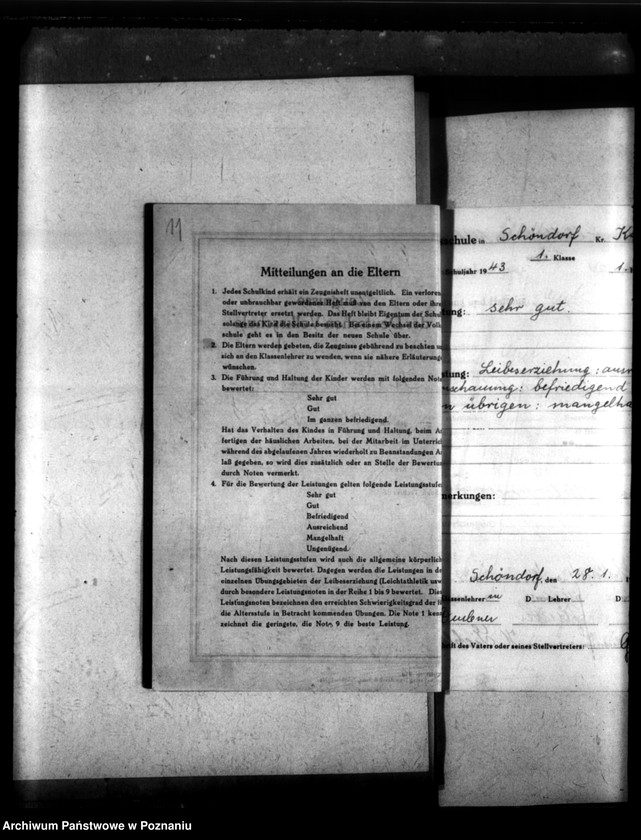 11
Mitteilungen an die Eltern
1. Jedes Schulkind erhält ein Zeugnisheft unentgeltlich. Ein verloren
oder unbrauchbar gewordenes Heft muß von den Eltern oder ihre
Stellvertreter ersetzt werden. Das Heft bleibt Eigentum der Schul
solange das Kind die Schule besucht. Bei einem Wechsel der Volk
schule geht es in den Besitz der neuen Schule über.
2. Die Eltern werden gebeten, die Zeugnisse gebührend zu beachten u
sich an den Klassenlehrer zu wenden, wenn sie nähere Erläuterung
wünschen.
3. Die Führung und Haltung der Kinder werden mit folgenden Note
bewertet:
Sehr gut
Gut
Im ganzen befriedigend.
Hat das Verhalten des Kindes in Führung und Haltung, beim A
fertigen der häuslichen Arbeiten, bei der Mitarbeit im Unterric
während des abgelaufenen Jahres wiederholt zu Beanstandungen A
laß gegeben, so wird dies zusätzlich oder an Stelle der Bewertu
durch Noten vermerkt.
4. Für die Bewertung der Leistungen gelten folgende Leistungsstufe
Sehr gut
Gut
Befriedigend
Ausreichend
Mangelhaft
Ungenügend.
Nach diesen Leistungsstufen wird auch die allgemeine körperlich
Leistungsfähigkeit bewertet. Dagegen werden die Leistungen in de
einzelnen Übungsgebieten der Leibeserziehung (Leichtathletik usw
durch besondere Leistungsnoten in der Reihe 1 bis 9 bewertet. Dies
Leistungsnoten bezeichnen den erreichten Schwierigkeitsgrad der f
die Altersstufe in Betracht kommenden Übungen. Die Note 1 kenn
zeichnet die geringste, die Note 9 die beste Leistung.
schule in Schöndorf Kr. K
1. Klasse
Schuljahr 1943 1.
ung: sehr gut.
tung: Leibeserziehung: aus
schauung: befriedigend
n übrigen: mangelha
erkungen:
Schöndorf, den 28. 1.
assenlehrer in D Lehrer D
ift des Vaters oder seines Stellvertreters:
Archiwum Państwowe w Poznaniu